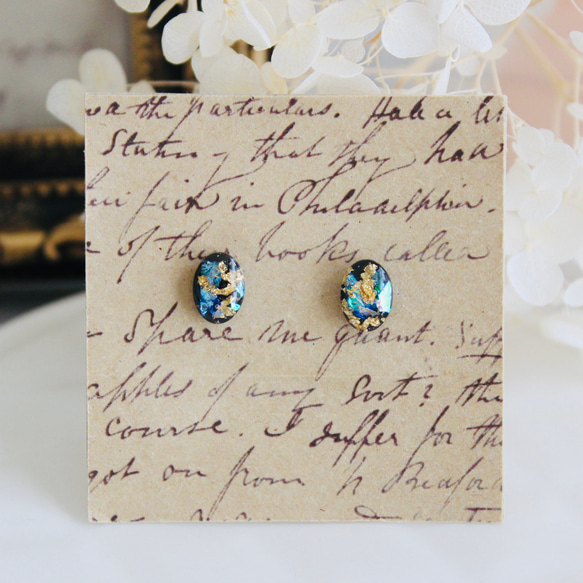 the particulars. Had a
that they had
fair in Philadelphia.
of the books called
Share me quant.
apples of any sort? the
course. I suffer for th
got on from